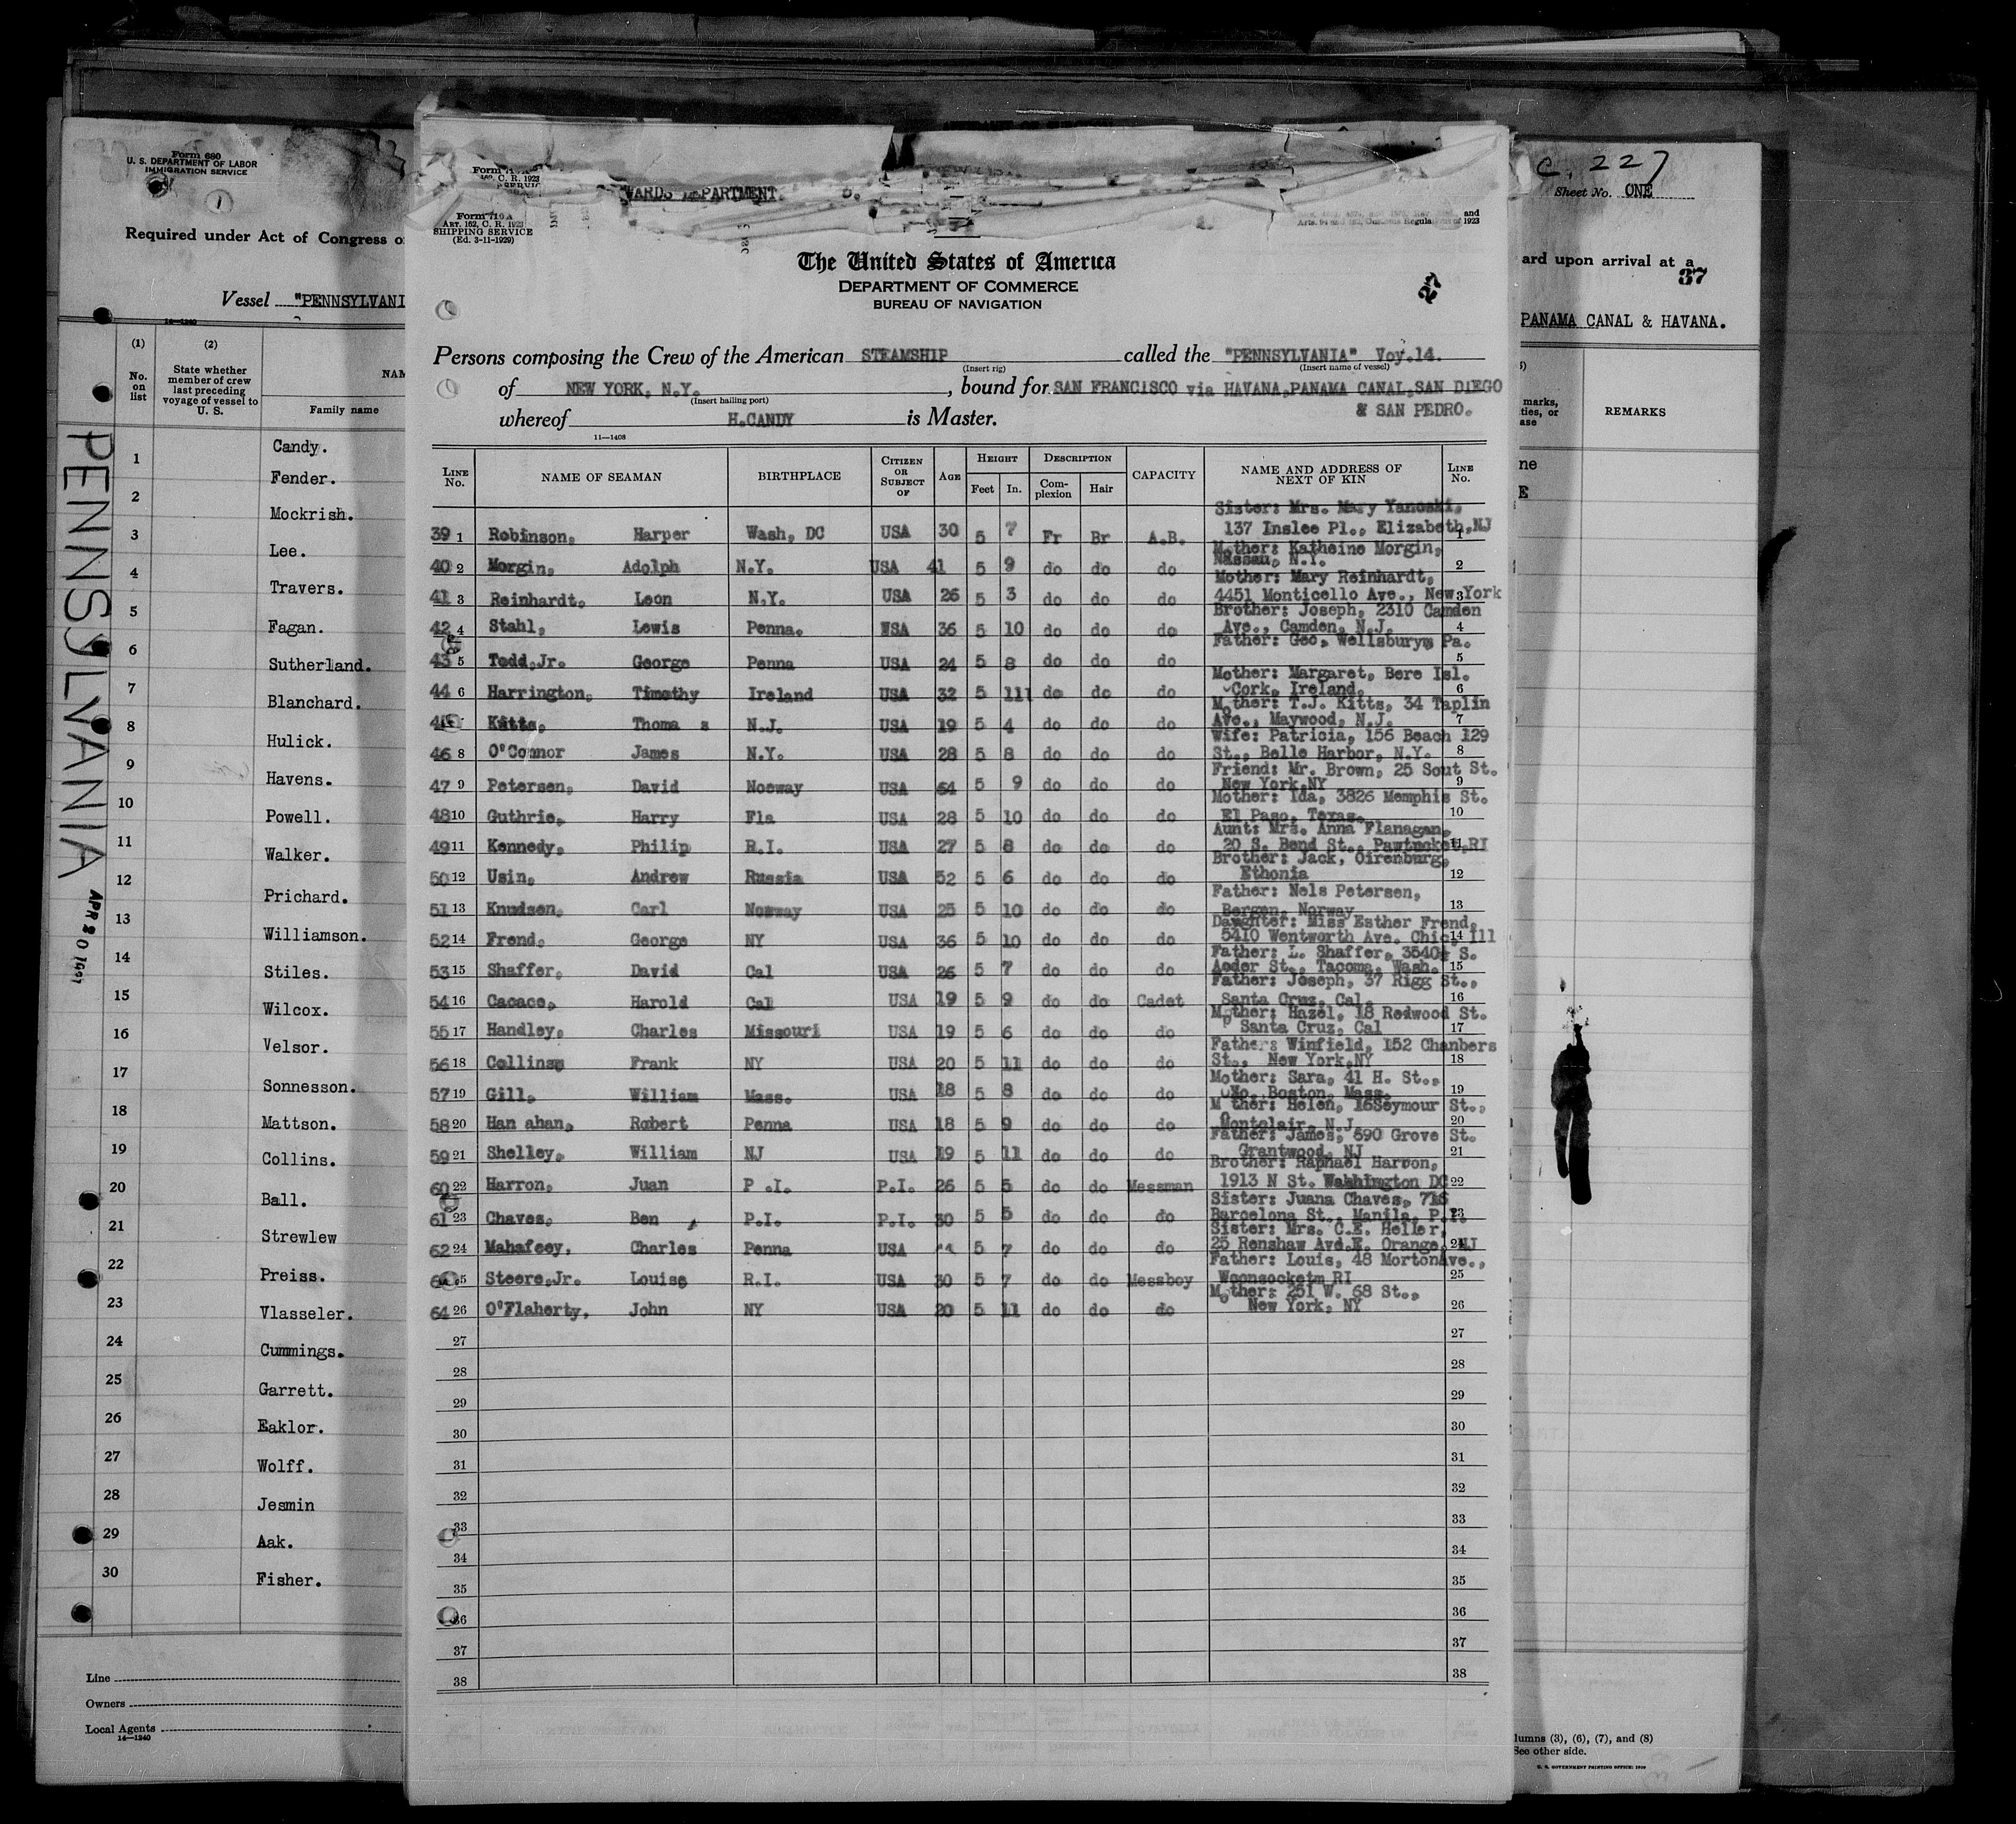 Form 680
U. S. DEPARTMENT OF LABOR
IMMIGRATION SERVICE
Required under Act of Congress
Vessel "PENNSYLVANI
14—1240
(1) (2)
No. on list
State whether member of crew last preceding voyage of vessel to U. S.
Family name
PENNSYLVANIA
1 Candy.
2 Fender.
3 Mockrish.
4 Lee.
5 Travers.
6 Fagan.
7 Sutherland.
8 Blanchard.
9 Hulick.
10 Havens.
11 Powell.
12 Walker.
13 Prichard.
14 Williamson.
15 Stiles.
16 Wilcox.
17 Velsor.
18 Sonnesson.
19 Mattson.
20 Collins.
21 Ball.
22 Strewlew
23 Preiss.
24 Vlasseler.
25 Cummings.
26 Garrett.
27 Eaklor.
28 Wolff.
29 Jesmin
30 Aak.
Fisher.
Line
Owners
Local Agents
14—1240
WARDS DEPARTMENT.
Form 710 A
ART. 162, C. R. 1923
SHIPPING SERVICE
(Ed. 3-11-1929)
The United States of America
DEPARTMENT OF COMMERCE
BUREAU OF NAVIGATION
27
Persons composing the Crew of the American STEAMSHIP called the "PENNSYLVANIA" Voy.14.
(Insert rig) (Insert name of vessel)
of NEW YORK, N.Y., bound for SAN FRANCISCO via HAVANA,PANAMA CANAL,SAN DIEGO
(Insert hailing port)
& SAN PEDRO.
whereof H.CANDY is Master.
11—1408
LINE No. NAME OF SEAMAN BIRTHPLACE CITIZEN OR SUBJECT OF AGE HEIGHT Feet In. DESCRIPTION Complexion Hair CAPACITY NAME AND ADDRESS OF NEXT OF KIN LINE No.
Sister: Mrs. Mary Yanoski,
39 1 Robinson, Harper Wash, DC USA 30 5 7 Fr Br A.B. 137 Inslee Pl., Elizabeth,NJ 1
Mother: Katheine Morgin,
40 2 Morgin, Adolph N.Y. USA 41 5 9 do do do Nassau, N.Y. 2
Mother: Mary Reinhardt,
41 3 Reinhardt, Leon N.Y. USA 26 5 3 do do do 4451 Monticello Ave., New York 3
Brother: Joseph, 2310 Camden
42 4 Stahl, Lewis Penna. USA 36 5 10 do do do Ave., Camden, N.J. 4
Father: Geo, Wellsbury, Pa.
43 5 Todd,Jr. George Penna USA 24 5 8 do do do 5
Mother: Margaret, Bere Isl.
44 6 Harrington, Timothy Ireland USA 32 5 11 do do do Cork, Ireland. 6
Mother: T.J. Kitts, 34 Taplin
Kitts, Thoma s N.J. USA 19 5 4 do do do Ave., Maywood, N.J. 7
Wife: Patricia, 156 Beach 129
46 8 O'Connor James N.Y. USA 28 5 8 do do do St., Belle Harbor, N.Y. 8
Friend: Mr. Brown, 25 Sout St.
47 9 Petersen, David Norway USA 54 5 9 do do do New York,NY 9
Mother: Ida, 3826 Memphis St.
48 10 Guthrie, Harry Fla USA 28 5 10 do do do El Paso, Texas. 10
Aunt: Mrs. Anna Flanagan,
49 11 Kennedy, Philip R.I. USA 27 5 8 do do do 20 S. Bend St., Pawtucket,RI 11
Brother: Jack, Oirenburg,
50 12 Usin, Andrew Russia USA 52 5 6 do do do Ethonia 12
Father: Nels Petersen,
51 13 Knudsen, Carl Norway USA 25 5 10 do do do Bergen, Norway 13
Daughter: Miss Esther Frend,
52 14 Frend, George NY USA 36 5 10 do do do 5410 Wentworth Ave. Chic, Ill 14
Father: L. Shaffer, 3540½ S.
53 15 Shaffer, David Cal USA 26 5 7 do do do St., Tacoma, Wash. 15
Father: Joseph, 37 Rigg St.,
54 16 Cacace, Harold Cal USA 19 5 9 do do Cadet Santa Cruz, Cal. 16
Mother: Hazel, 18 Redwood St.
55 17 Handley, Charles Missouri USA 19 5 6 do do do Santa Cruz, Cal 17
Father: Winfield, 152 Chanbers
56 18 Collins, Frank NY USA 20 5 11 do do do St., New York,NY 18
Mother: Sara, 41 H. St.,
57 19 Gill, William Mass. USA 18 5 8 do do do So. Boston, Mass. 19
Mother: Helen, 16Seymour St.,
58 20 Han ahan, Robert Penna USA 18 5 9 do do do Montclair, N.J. 20
Father: James, 590 Grove St.
59 21 Shelley, William NJ USA 19 5 11 do do do Grantwood, NJ 21
Brother: Raphael Harron,
60 22 Harron, Juan P .I. P.I. 26 5 5 do do Messman 1913 N St. Washington DC 22
Sister: Juana Chaves, 716
61 23 Chaves, Ben P.I. P.I. 30 5 5 do do do Barcelona St., Manila, P.I. 23
Sister: Mrs. C.E. Heller,
62 24 Mahafeey, Charles Penna USA 5 7 do do do 25 Renshaw Ave.E. Orange, NJ 24
Father: Louis, 48 MortonAve.,
Steere,Jr. Louise R.I. USA 30 5 7 do do Messboy Woonsocketm RI 25
Mother: 251 W. 68 St.,
64 26 O'Flaherty, John NY USA 20 5 11 do do do New York, NY 26
27 27
28 28
29 29
30 30
31 31
32 32
33 33
34 34
35 35
36 36
37 37
38 38
C. 227
Sheet No. ONE
ard upon arrival at a
37
PANAMA CANAL & HAVANA.
marks,
ties, or
ase
REMARKS
ne
E
lumns (3), (6), (7), and (8)
See other side.
U. S. GOVERNMENT PRINTING OFFICE: 1929